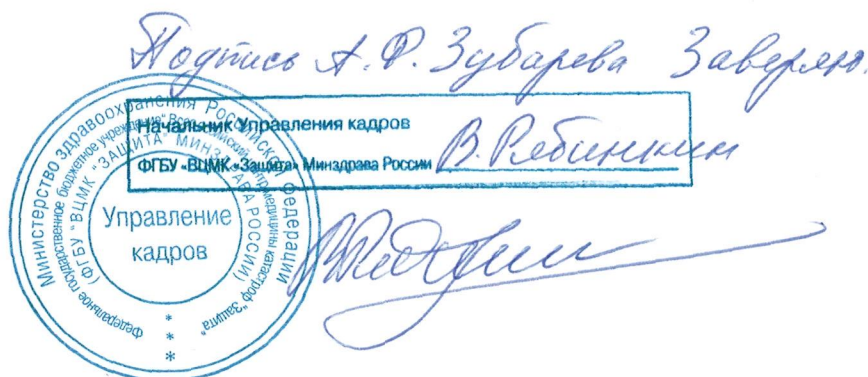 Подпись А.Ф. Зубарева Заверяю.
Начальник Управления кадров
ФГБУ «ВЦМК «Защита» Минздрава России В. Рябинкин
Министерство здравоохранения Российской Федерации
Федеральное государственное бюджетное учреждение "Всероссийский центр медицины катастроф "Защита"
(ФГБУ "ВЦМК "ЗАЩИТА" МИНЗДРАВА РОССИИ)
Управление
кадров
* * *